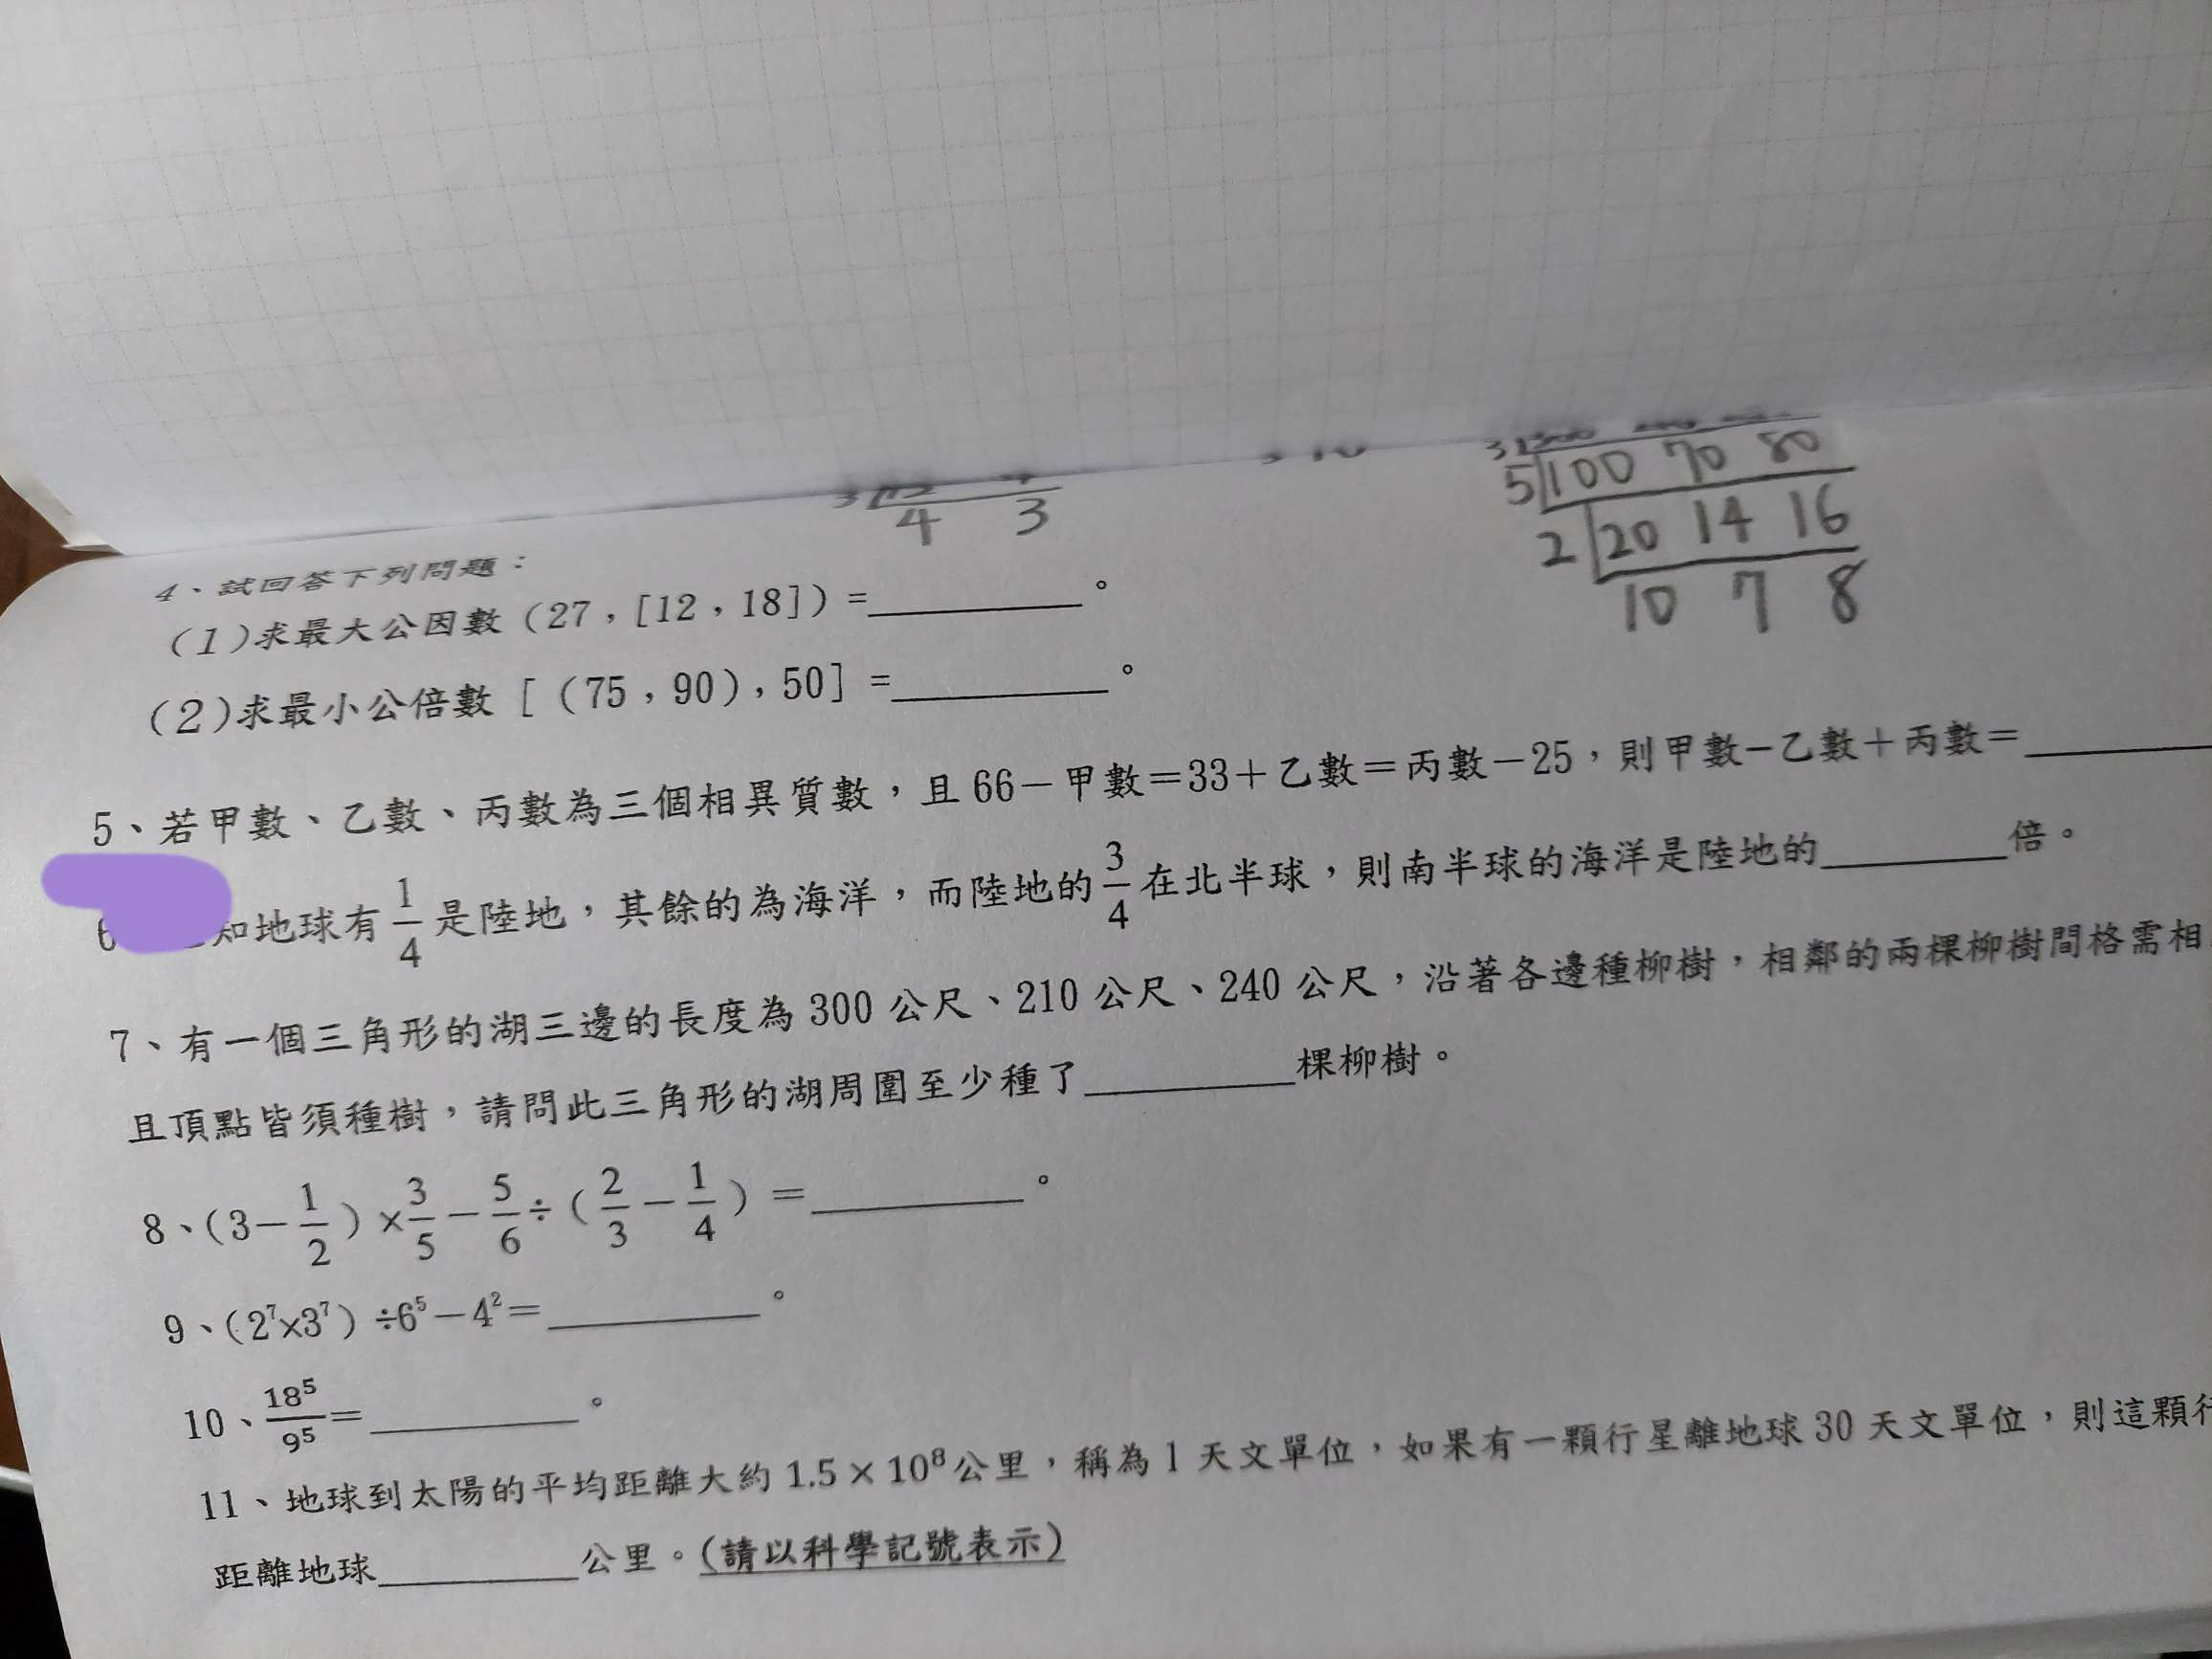 5 100 70 80
2 20 14 16
10 7 8
4 3
4、試回答下列問題：
(1)求最大公因數(27，[12，18])=________。
(2)求最小公倍數[(75，90)，50]=________。
5、若甲數、乙數、丙數為三個相異質數，且66－甲數＝33＋乙數＝丙數－25，則甲數－乙數＋丙數＝________
知地球有1/4是陸地，其餘的為海洋，而陸地的3/4在北半球，則南半球的海洋是陸地的________倍。
7、有一個三角形的湖三邊的長度為300公尺、210公尺、240公尺，沿著各邊種柳樹，相鄰的兩棵柳樹間格需相
且頂點皆須種樹，請問此三角形的湖周圍至少種了________棵柳樹。
8、(3－1/2)×3/5－5/6÷(2/3－1/4)＝________。
9、(2⁷×3⁷)÷6⁵－4²＝________。
10、18⁵/9⁵＝________。
11、地球到太陽的平均距離大約1.5×10⁸公里，稱為1天文單位，如果有一顆行星離地球30天文單位，則這顆行
距離地球________公里。(請以科學記號表示)